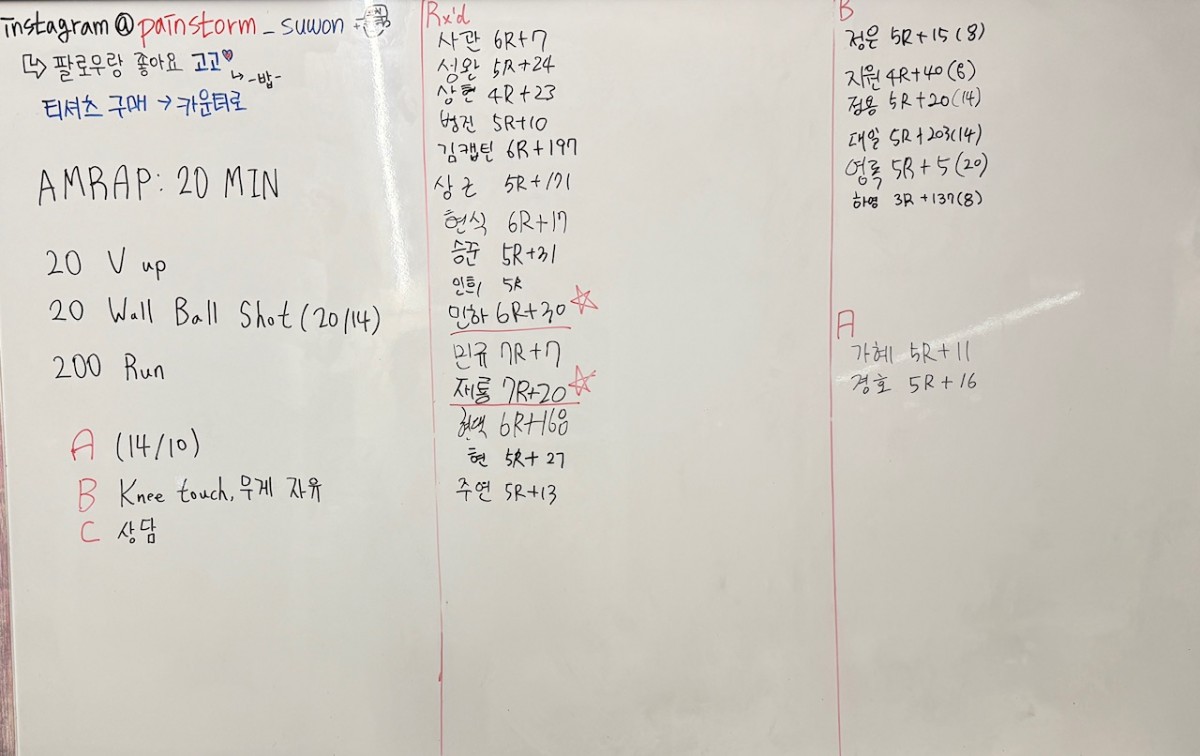 instagram@painstorm_suwon
↳ 팔로우랑 좋아요 고고♥
↳ -밥-
티셔츠 구매 → 카운터로
AMRAP: 20 MIN
20 V up
20 Wall Ball Shot (20/14)
200 Run
A (14/10)
B Knee touch, 무게 자유
C 상담
Rx'd
사관 6R+7
성완 5R+24
상현 4R+23
병진 5R+10
김캡틴 6R+197
상근 5R+171
현식 6R+17
승준 5R+31
인희 5R
민하 6R+30 ☆
민규 7R+7
재룡 7R+20 ☆
현택 6R+168
현 5R+27
주연 5R+13
B
정은 5R+15(8)
지원 4R+40(6)
정용 5R+20(14)
대일 5R+203(14)
영록 5R+5(20)
하영 3R+137(8)
A
가혜 5R+11
경호 5R+16